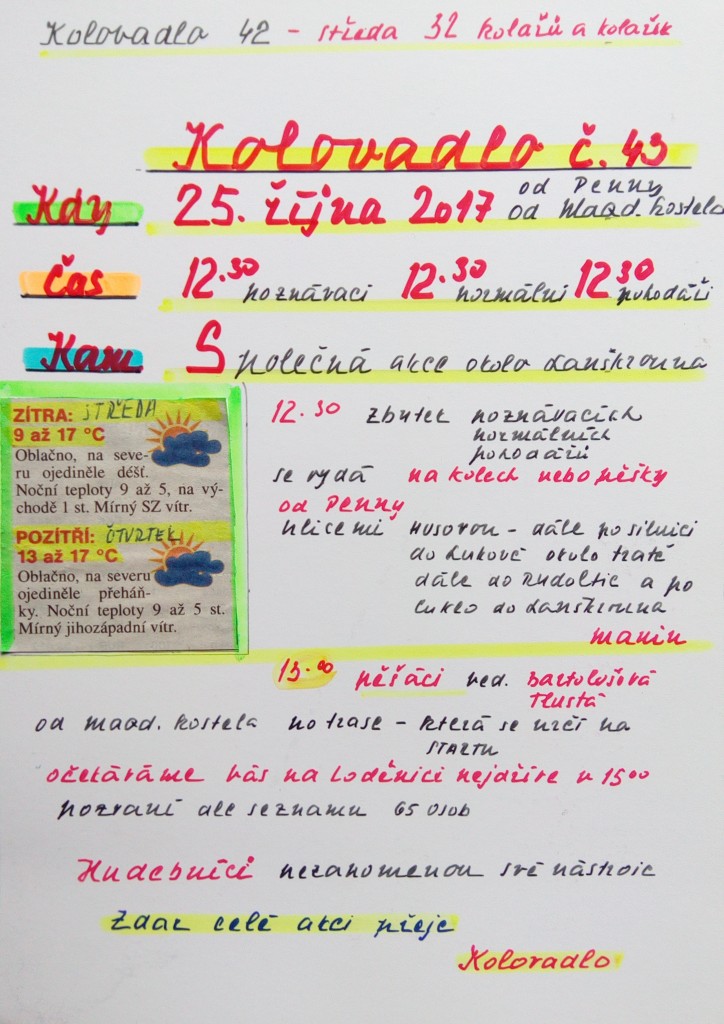 Kolovadlo 42 - středa 32 kolařů a kolařek
Kolovadlo č. 43
Kdy 25. října 2017 od Penny
od Maad. kostela
Čas 12.30 poznávací 12.30 normální 12 30 pohodáři
Kam Společná akce okolo Lanškrouna
ZÍTRA: STŘEDA
9 až 17 °C
Oblačno, na seve-
ru ojediněle déšť.
Noční teploty 9 až 5, na vý-
chodě 1 st. Mírný SZ vítr.
POZÍTŘÍ: ČTVRTEK
13 až 17 °C
Oblačno, na severu
ojediněle přeháň-
ky. Noční teploty 9 až 5 st.
Mírný jihozápadní vítr.
12.30 zbytek poznávacích
normálních
pohodářů
se vydá na kolech nebo pěšky
od Penny
ulicemi Husovou - dále po silnici
do Lukové okolo tratě
dále do Rudoltic a po
cuklo do Lanškrouna
manin
13.00 pěšáci ved. Bartolušová
Tlustá
od Maad. kostela po trase - která se určí na
STARTU
očekáváme vás na Loděnici nejdříve v 15 00
pozvaní dle seznamu 65 osob
Hudebníci nezapomenou své nástroje
Zdar celé akci přeje
Kolovadlo